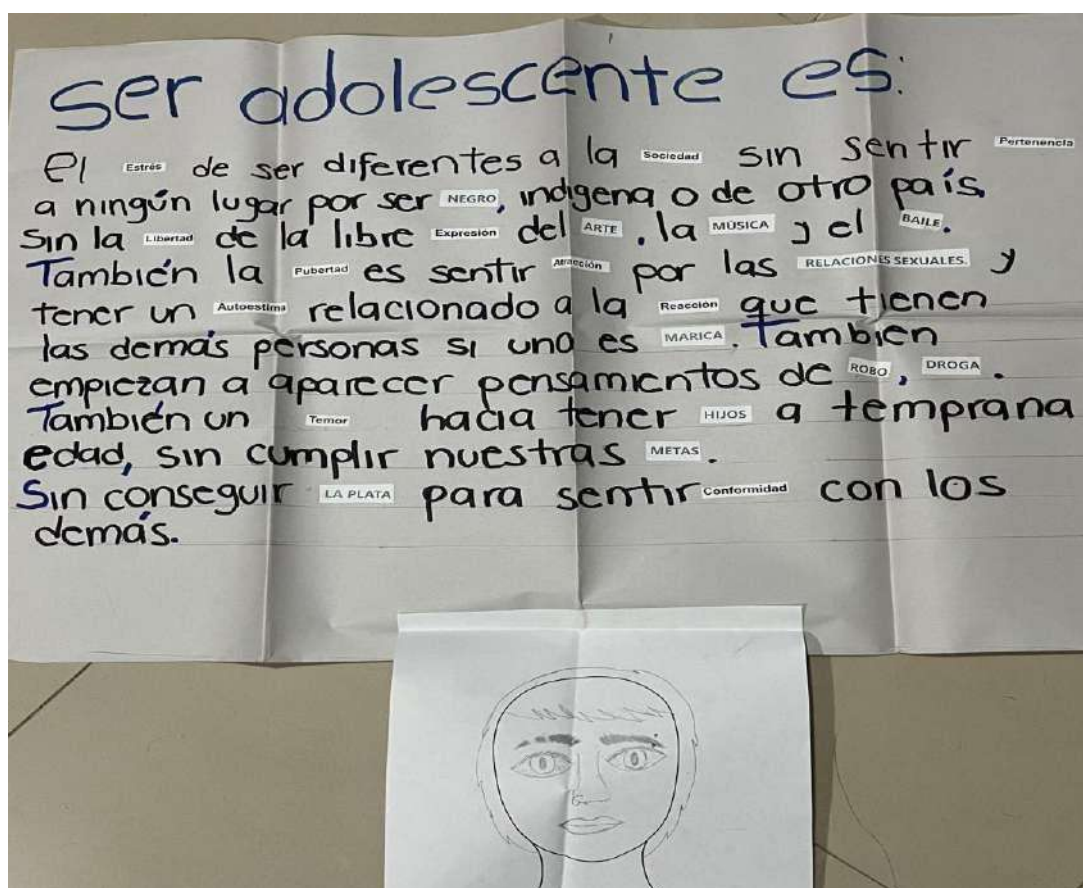 Ser adolescente es:
El Estrés de ser diferentes a la Sociedad sin sentir Pertenencia
a ningún lugar por ser NEGRO, indígena o de otro país.
Sin la Libertad de la libre Expresión del ARTE, la MÚSICA y el BAILE.
También la Pubertad es sentir Atracción por las RELACIONES SEXUALES. y
tener un Autoestima relacionado a la Reacción que tienen
las demás personas si uno es MARICA. También
empiezan a aparecer pensamientos de ROBO, DROGA.
También un Temor hacia tener HIJOS a temprana
edad, sin cumplir nuestras METAS.
Sin conseguir LA PLATA para sentir Conformidad con los
demás.